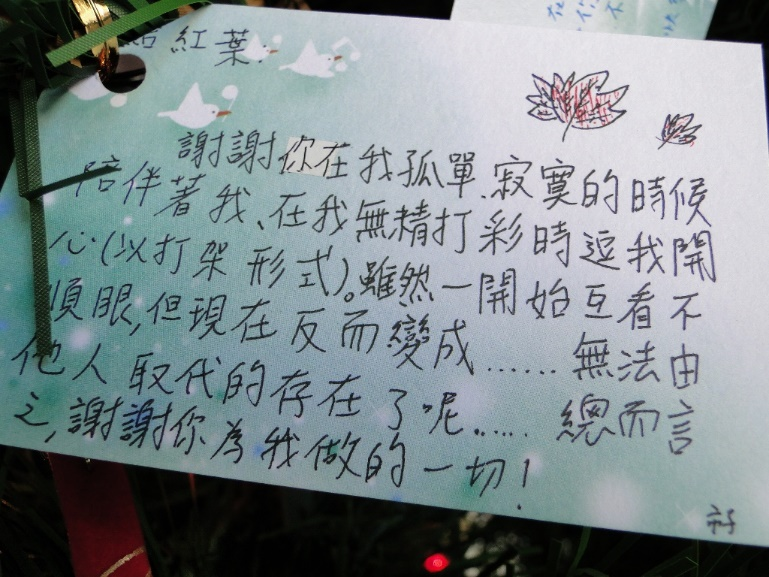 給紅葉:
謝謝你在我孤單、寂寞的時候
陪伴著我、在我無精打彩時逗我開
心(以打架形式)。雖然一開始互看不
順眼,但現在反而變成......無法由
他人取代的存在了呢。..... 總而言
之,謝謝你為我做的一切!